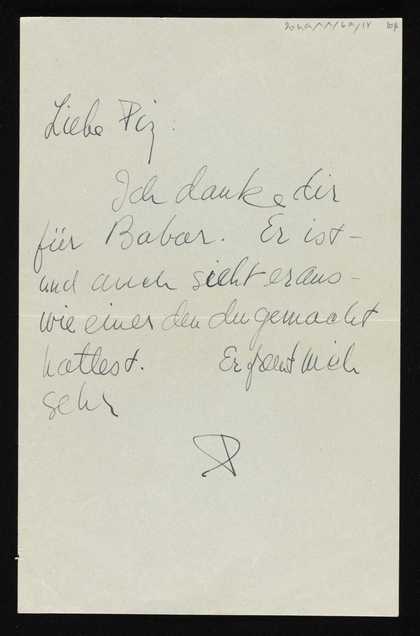 Liebe Piz.
Ich danke dir
für Babar. Er ist –
und auch sieht er aus –
wie einer den du gemacht
hattest. Er freut mich
sehr